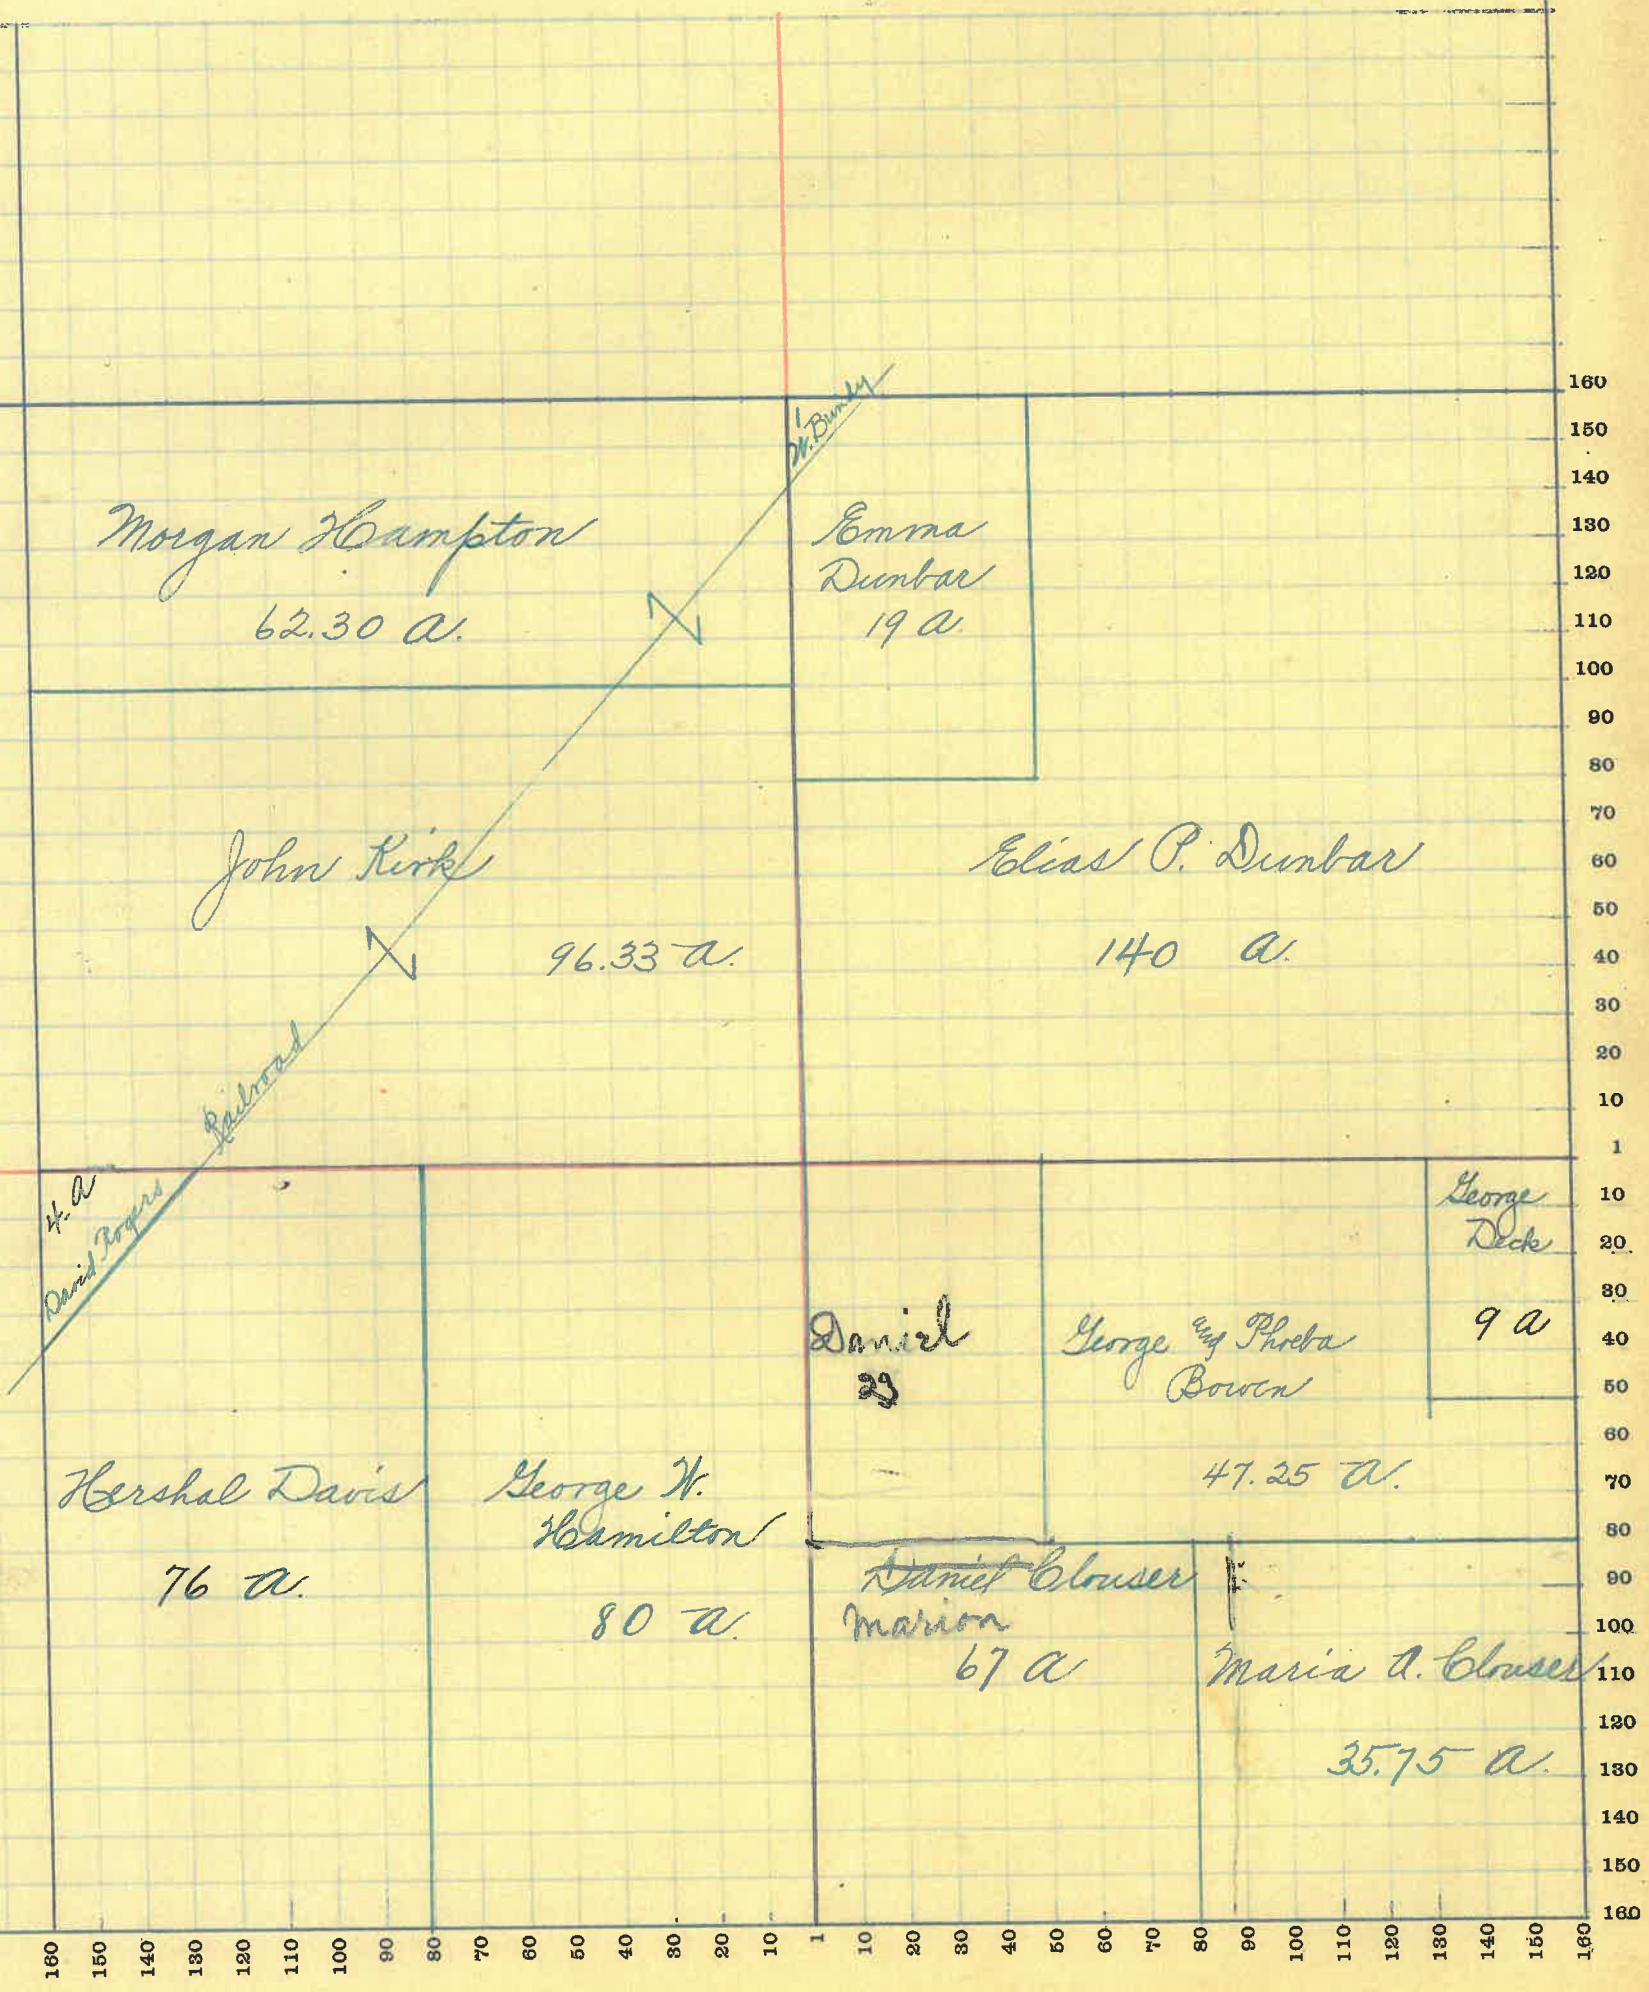 1
W. Bundy
Morgan Hampton
62.30 a.
Emma
Dunbar
19 a.
John Kirk
96.33 a.
Elias P. Dunbar
140 a.
Railroad
4. a
David Rogers
George
Deck
9 a
Daniel
23
George and Phoeba
Bowen
47.25 a.
Hershal Davis
76 a.
George W.
Hamilton
80 a.
Daniel Clouser
Marion
67 a
Maria A. Clouser
35.75 a.
160
150
140
130
120
110
100
90
80
70
60
50
40
30
20
10
1
10
20
30
40
50
60
70
80
90
100
110
120
130
140
150
160
160 150 140 130 120 110 100 90 80 70 60 50 40 30 20 10 1 10 20 30 40 50 60 70 80 90 100 110 120 130 140 150 160